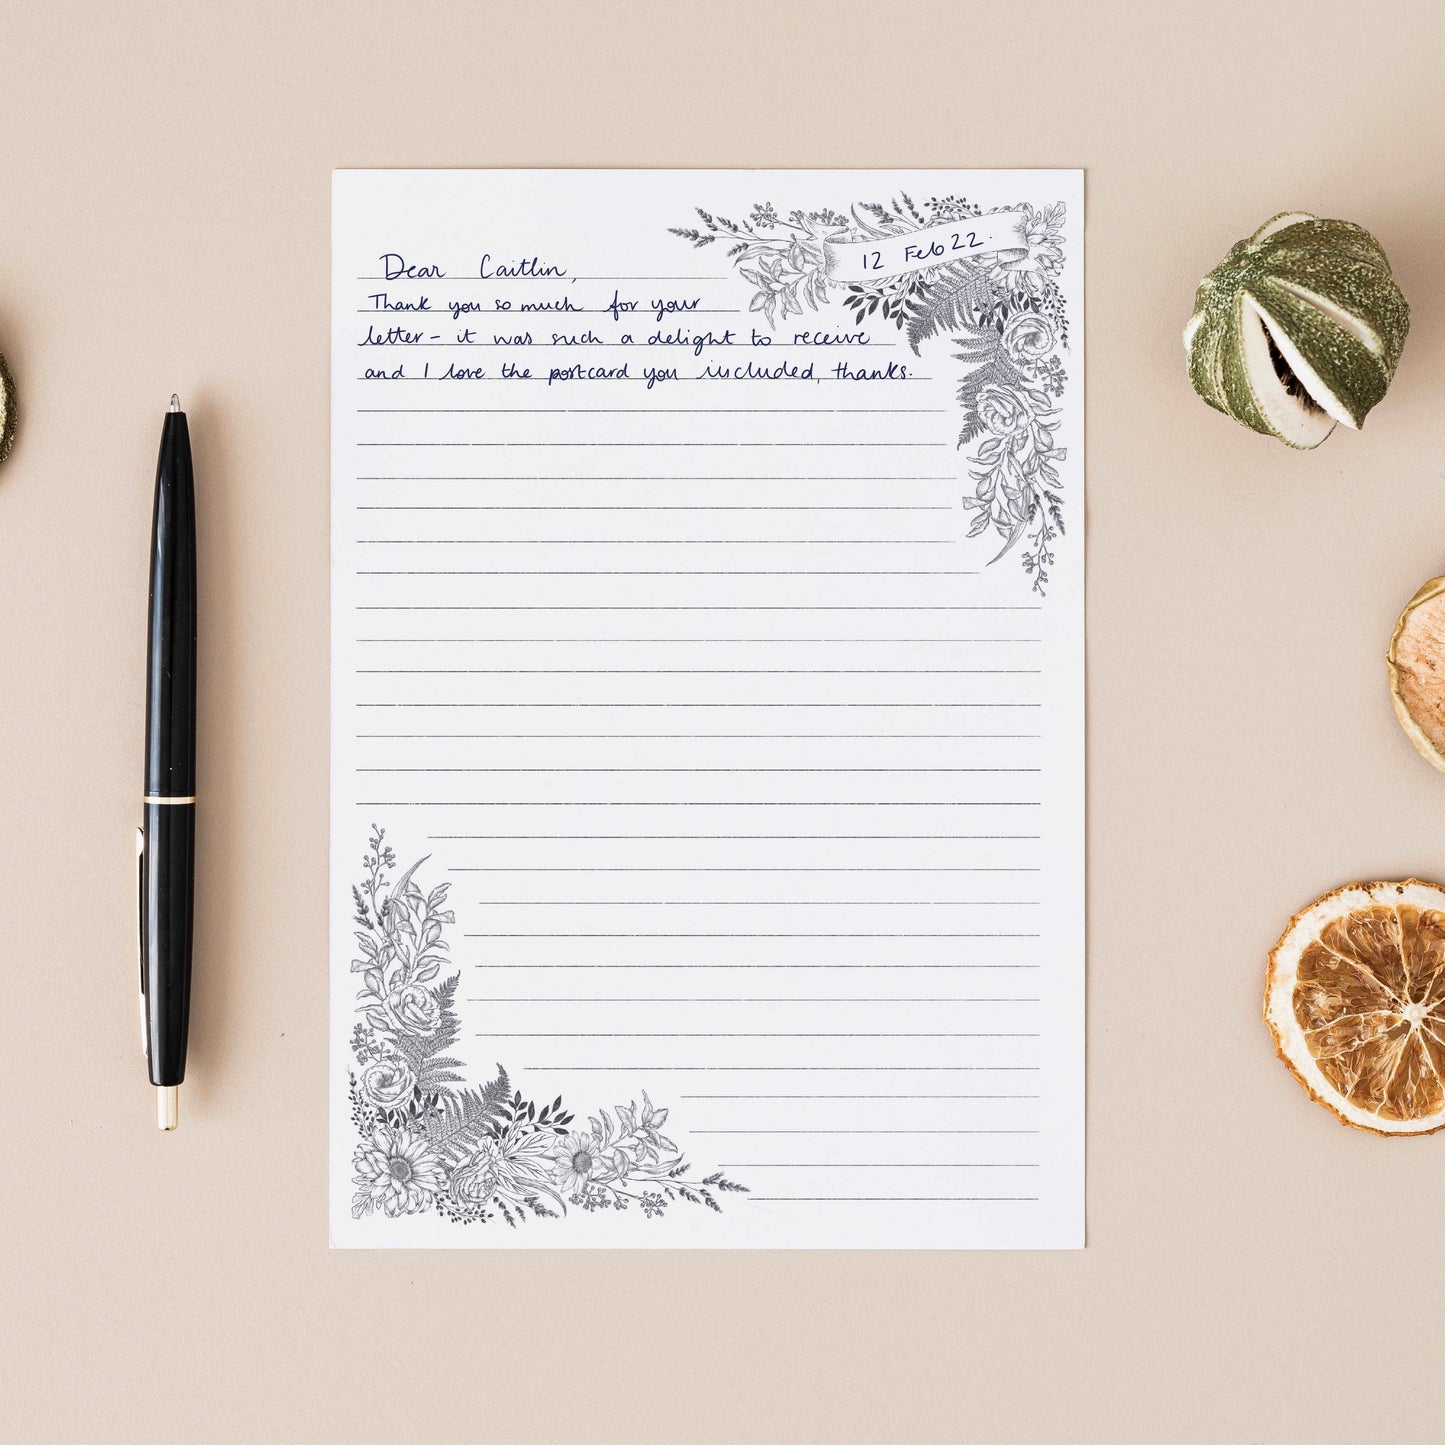 12 Feb 22.
Dear Caitlin,
Thank you so much for your
letter - it was such a delight to receive
and I love the postcard you included, thanks.